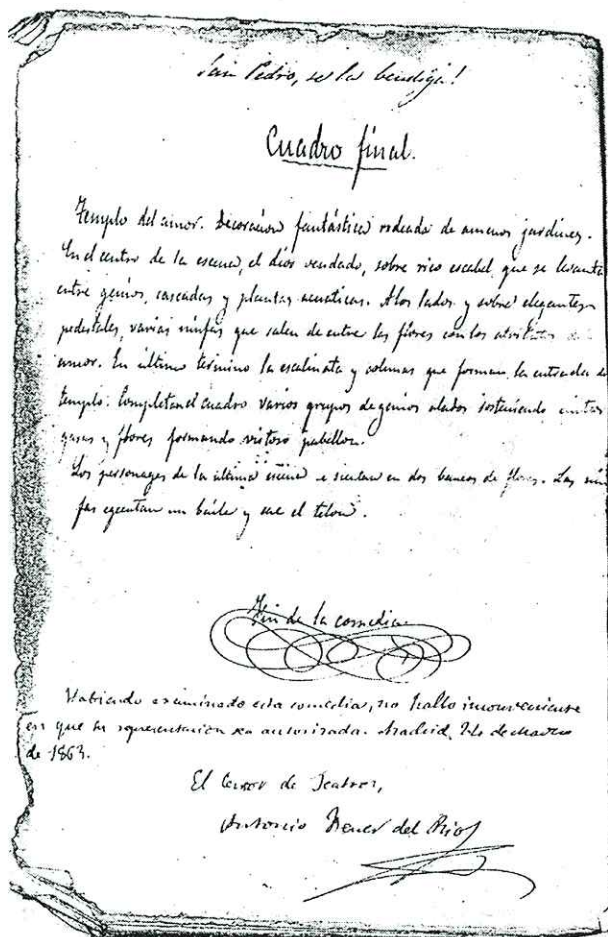 San Pedro, se la bendiga!
Cuadro final.
Templo del amor. Decoracion fantástica rodeada de amenos jardines.
En el centro de la escena, el dios vendado, sobre rico escabel, que se levanta
entre genios, cascadas y plantas acuaticas. A los lados y sobre elegantes
pedestales, varias ninfas que salen de entre las flores con los atributos del
amor. En ultimo termino la escalinata y colunas que forman la entrada del
templo. Completan el cuadro varios grupos de genios alados sosteniendo cintas
gasas y flores formando vistoso pabellon.
Los personages de la ultima escena se sientan en dos bancos de flores. Las nin
fas egecutan un baile y cae el telon.
Fin de la comedia
Habiendo examinado esta comedia, no hallo inconveniente
en que su representacion sea autorizada. Madrid, de Marzo
de 1863.
El Censor de Teatros,
Antonio Ferrer del Rio